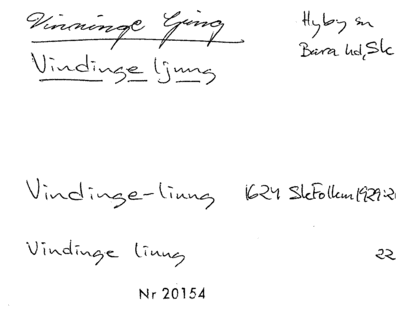 Vinninge Ljung Hyby sn
Vindinge ljung Bara hd, Sk
Vindinge-liung 1624 SkFolkm 1929:2
Vindinge liung 22
Nr 20154